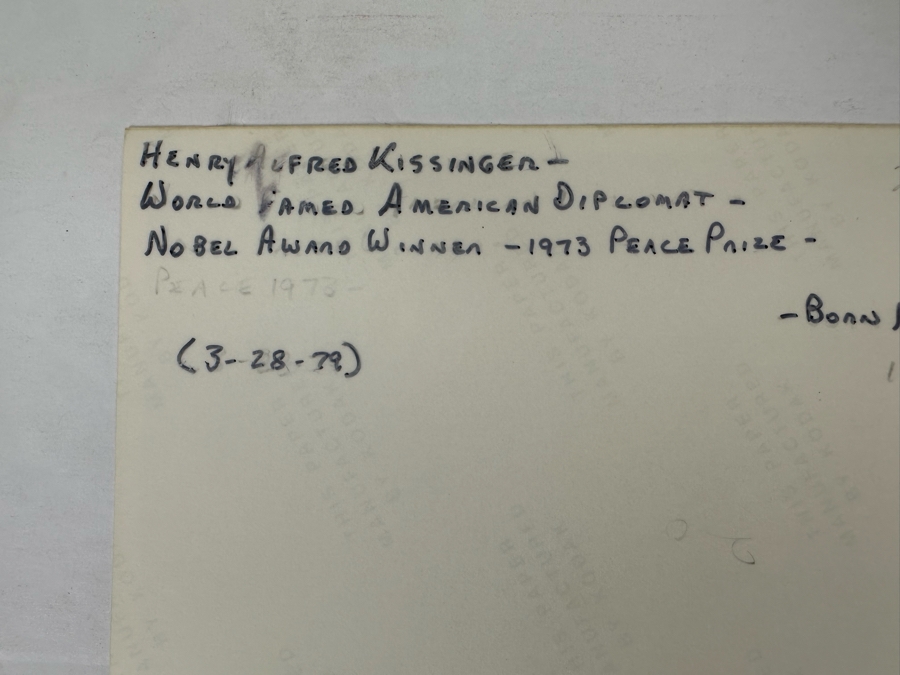 HENRY ALFRED KISSINGER -
WORLD FAMED AMERICAN DIPLOMAT -
NOBEL AWARD WINNER - 1973 PEACE PRIZE -
PEACE 1973 -
- BORN
(3-28-79)
THIS PAPER
MANUFACTURED
BY KODAK